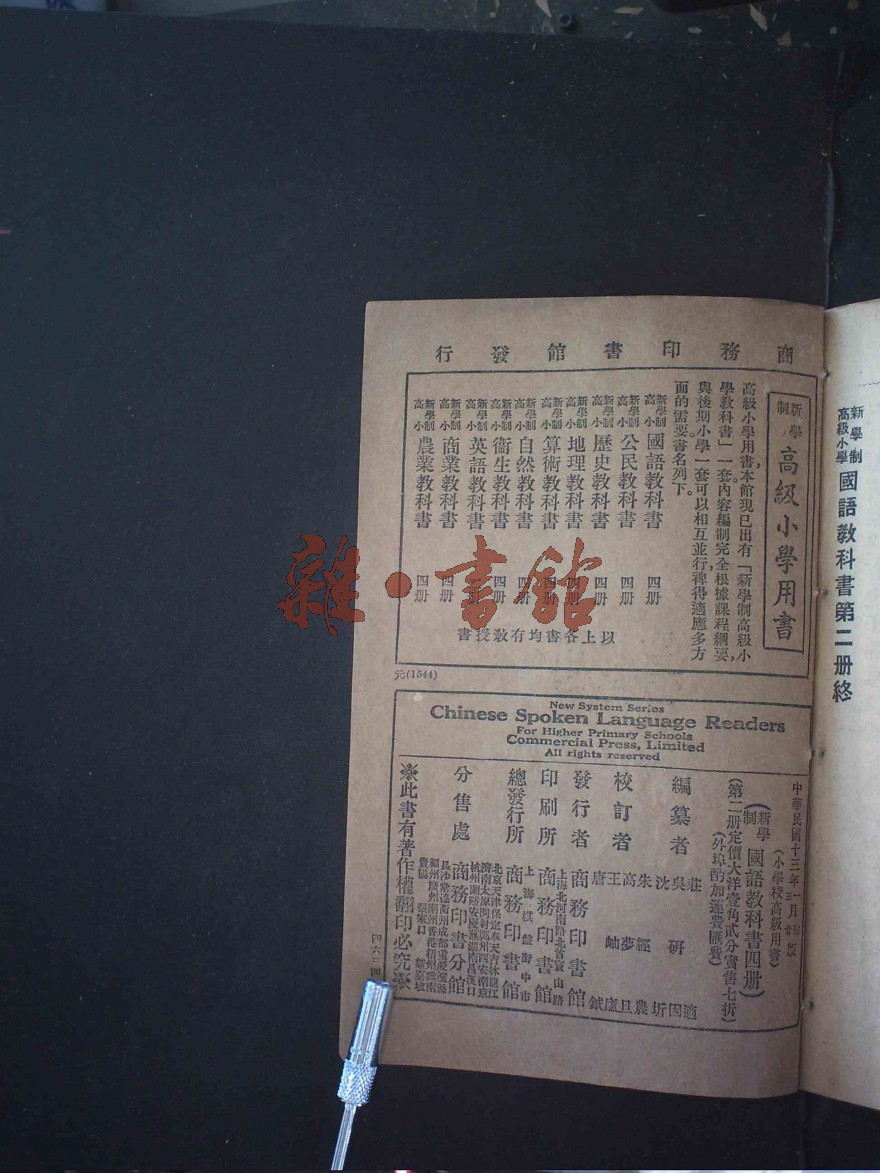 新學制
高級小學
國語教科書第二册終
商務印書館發行
新學制
高級小學用書
高級小學用書,本館現已出有「新學制高級小
學教科書」一套,內容編制完全根據課程綱要,
與後期小學一套可以相互並行,裨得適應多方
面的需要。書名列下。
新學制高小 國語教科書 四册
新學制高小 公民教科書 四册
新學制高小 歷史教科書 四册
新學制高小 地理教科書 四册
新學制高小 算術教科書 四册
新學制高小 自然教科書 四册
新學制高小 衞生教科書 四册
新學制高小 英語教科書 四册
新學制高小 商業教科書 四册
新學制高小 農業教科書 四册
以上各書均有教授書
元(1544)
New System Series
Chinese Spoken Language Readers
For Higher Primary Schools
Commercial Press, Limited
All rights reserved
中華民國十三年一月
(小學校高級用書)
(新學制 國語教科書四册)
(第二册定價大洋壹角貳分實售七折)
(外埠酌加運費匯費)
編纂者 莊適 吳研因 沈圻
校訂者 朱經農 高夢旦 王岫廬 唐鉞
發行者 商務印書館
印刷所 上海北河南路北首寶山路 商務印書館
總發行所 上海棋盤街中市 商務印書館
分售處 商務印書分館
※此書有著作權翻印必究※
雜·書館